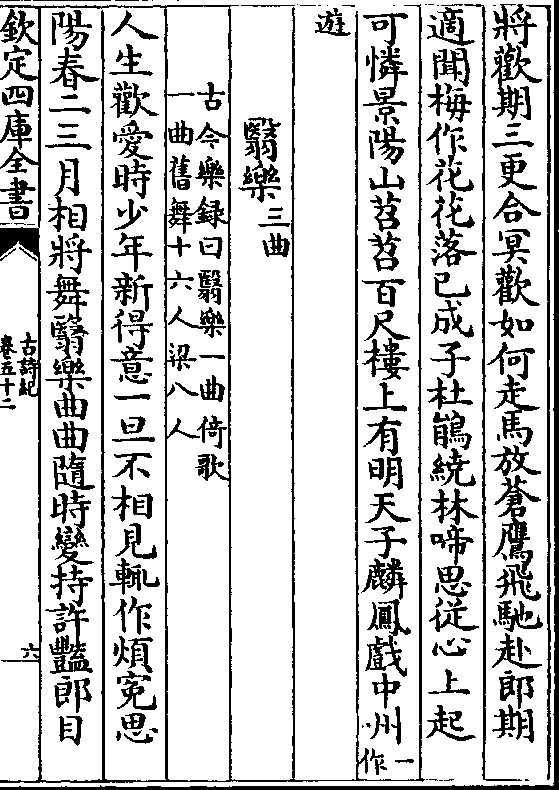 將歡期三更合冥歡如何走馬放蒼鷹飛馳赴郎期
適聞梅作花花落已成子杜鵑繞林啼思從心上起
可憐景陽山苕苕百尺樓上有明天子麟鳳戲中州一作
遊
翳樂三曲
古今樂録曰翳樂一曲倚歌
一曲舊舞十六人梁八人
人生歡愛時少年新得意一旦不相見輒作煩寃思
陽春二三月相將舞翳樂曲曲隨時變持許豔郎目
欽定四庫全書
古詩紀
卷五十二
六